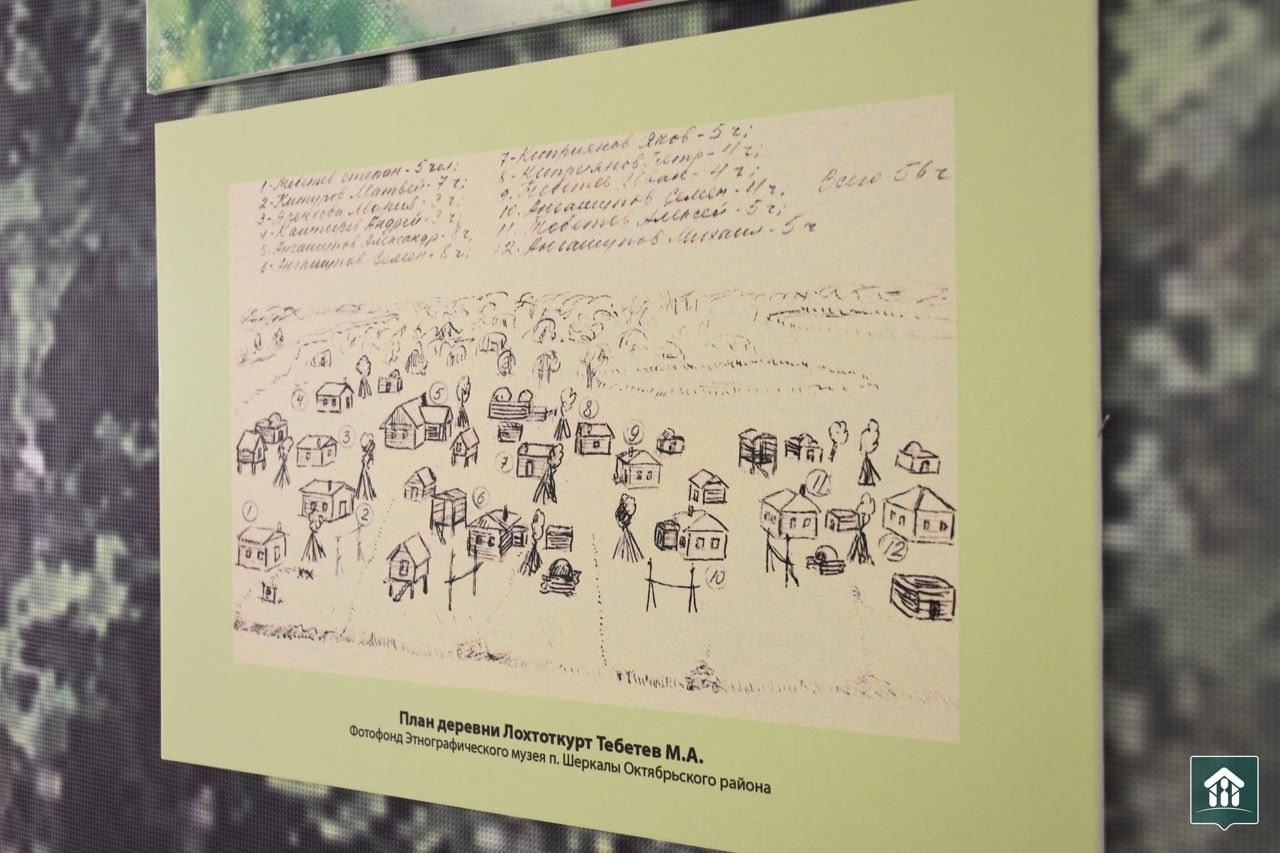 1-Тебетев Степан - 5 чел;
2-Китиров Матвей - 7 ч;
3- Мария - 3 ч;
4- Андрей - 9 ч;
5- Ангашупов Александр - ч;
6- Ангашупов Семен - 8 ч;
7-Киприянов Яков - 5 ч;
8-Киприянов Петр - 4 ч;
9. Тебетев Иван - 4 ч;
10. Ангашупов Семен - 4 ч;
11. Тебетев Алексей - 5 ч;
12. Ангашупов Михаил - 5 ч
Всего 56 ч
4
5
8
3
9
7
11
6
1
2
12
10
План деревни Лохтоткурт Тебетев М.А.
Фотофонд Этнографического музея п. Шеркалы Октябрьского района